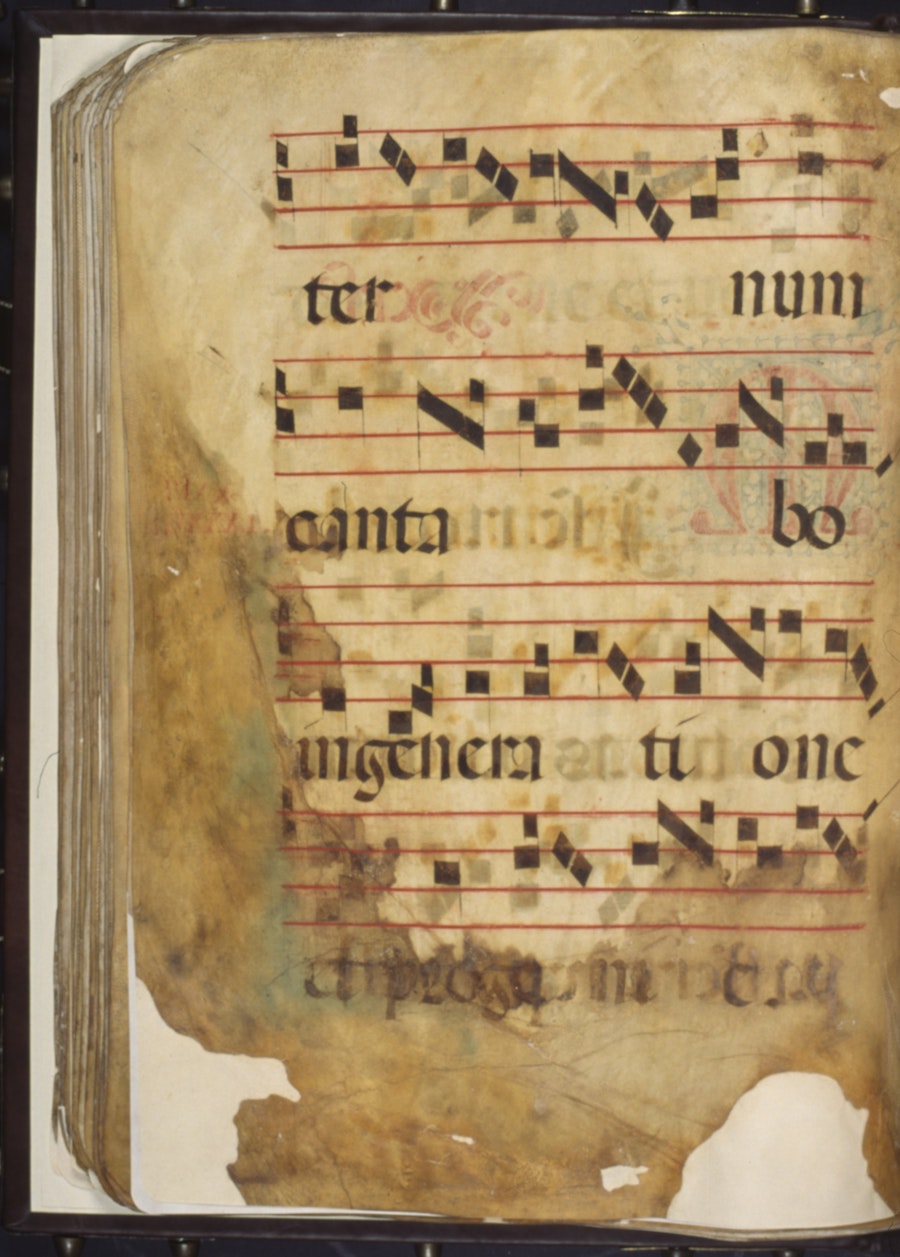 ter num
canta bo
ingenera ti one
et